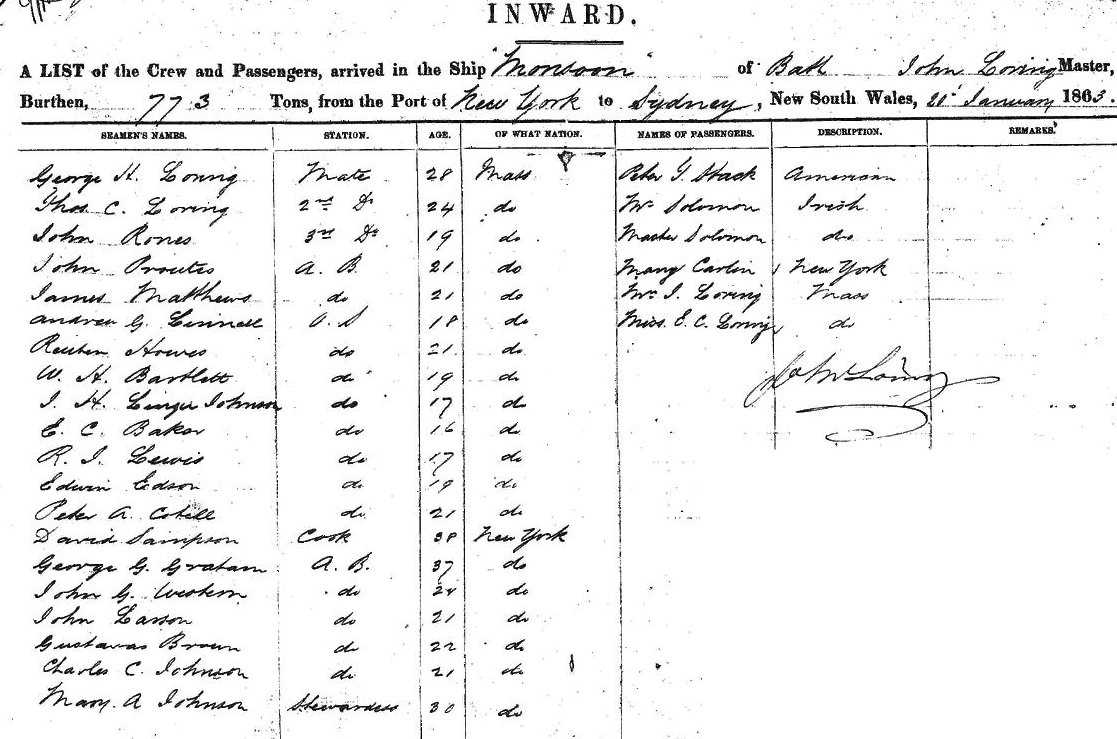 INWARD.
A LIST of the Crew and Passengers, arrived in the Ship "Monsoon" of Bath John Loring Master,
Burthen, 773 Tons, from the Port of New York to Sydney, New South Wales, 21st January 1863.
SEAMEN'S NAMES. STATION. AGE. OF WHAT NATION. NAMES OF PASSENGERS. DESCRIPTION. REMARKS.
George H. Loring Mate 28 Mass Peter Stack American
Thos. C. Loring 2nd Do 24 do Mr Solomon Irish
John Rones 3rd Do 19 do Master Solomon do
John Proutes A. B. 21 do Mary Carlin New York
James Matthews do 21 do Mrs J. Loring Mass
Andrew G. Linnell O. S 18 do Miss E. C. Loring do
Reuben Howes do 21 do
W. H. Bartlett do 19 do John Loring
J. H. Johnson do 17 do
E. C. Baker do 16 do
R. J. Lewis do 17 do
Edwin Edson do 19 do
Peter A. do 21 do
David Sampson Cook 38 New York
George G. Graham A. B. 37 do
John G. Western do 24 do
John Larson do 21 do
Gustavas Brown do 22 do
Charles C. Johnson do 21 do
Mary A Johnson Stewardess 30 do